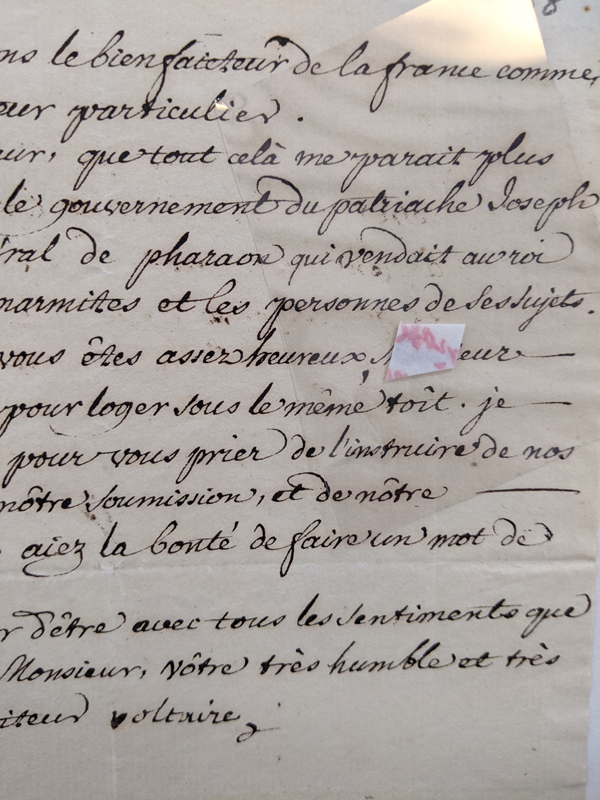 le bienfaicteur de la france comme
particulier.
que tout celà me parait plus
le gouvernement du patriache Joseph
de pharaon qui vendait au roi
marmites et les personnes de ses sujets.
vous êtes assez heureux,
pour loger sous le même toît. je
pour vous prier de l'instruire de nos
nôtre soumission, et de nôtre
aiez la bonté de faire un mot de
d'être avec tous les sentiments que
Monsieur, vôtre très humble et très
voltaire